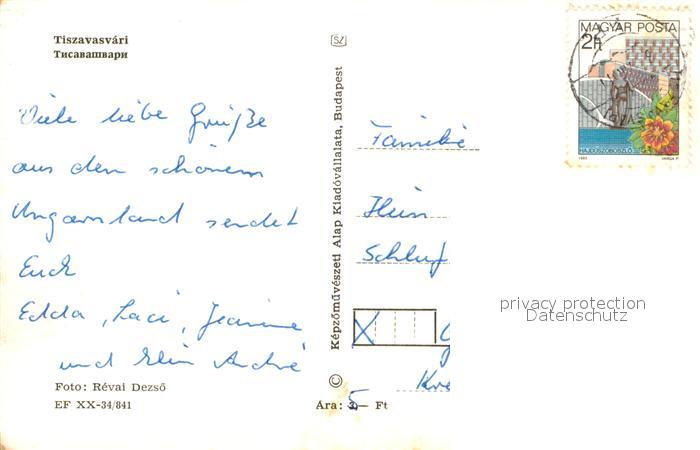 Tiszavasvári
Тисавашвари
Viele liebe Grüße
aus dem schönen
Ungarnland sendet
Euch
Edda, Laci, Jeanine
und Klein André
Foto: Révai Dezső
EF XX-34/841
Képzőművészeti Alap Kiadóvállalata, Budapest
©
Ára: 5 — Ft
MAGYAR POSTA
2Ft
HAJDÚSZOBOSZLÓ
1983 VARGA P.
Familie
Schluf
X
Kre
privacy protection
Datenschutz